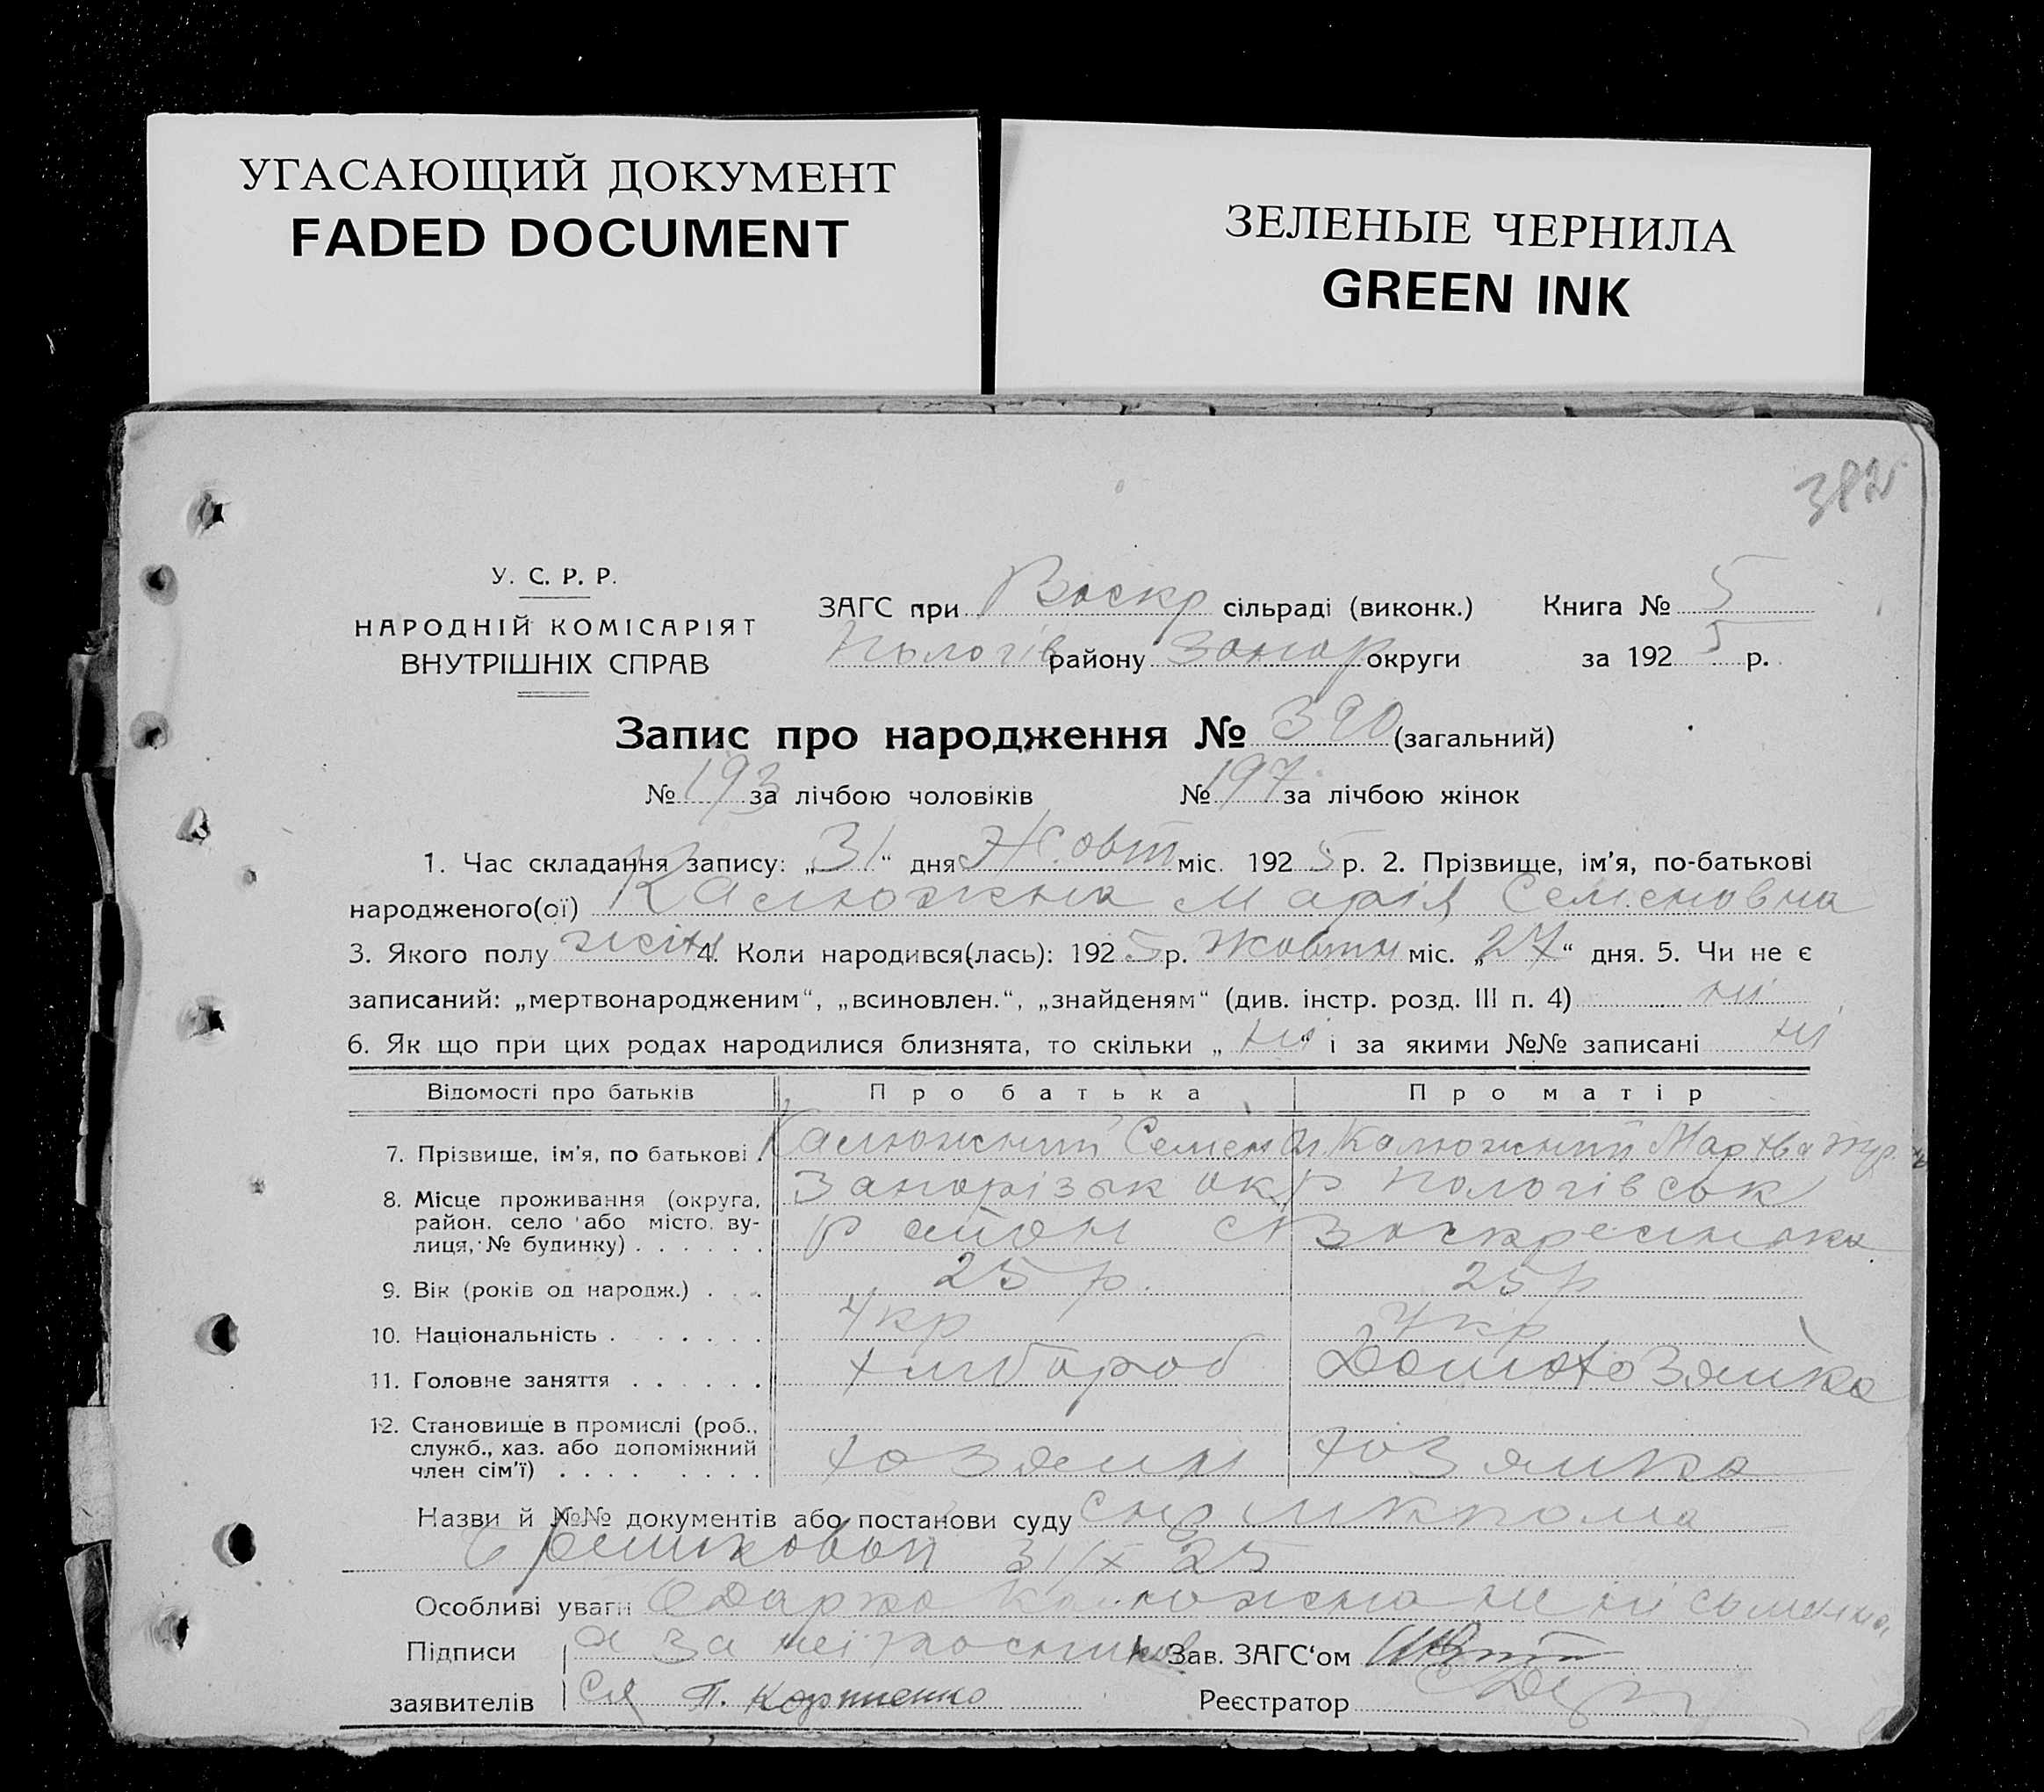 УГАСАЮЩИЙ ДОКУМЕНТ
FADED DOCUMENT
ЗЕЛЕНЫЕ ЧЕРНИЛА
GREEN INK
382
У. С. Р. Р.
НАРОДНІЙ КОМІСАРІЯТ
ВНУТРІШНІХ СПРАВ
ЗАГС при Воскр сільраді (виконк.) Книга № 5
Пологів району Запор округи за 1925 р.
Запис про народження № 390 (загальний)
№ 193 за лічбою чоловіків № 197 за лічбою жінок
1. Час складання запису: „31“ дня Жовт міс. 1925 р. 2. Прізвище, ім'я, по-батькові
народженого(ої) Калюжна Марія Семеновна
3. Якого полу жін 4. Коли народився(лась): 1925 р. Жовтн міс. „27“ дня. 5. Чи не є
записаний: „мертвонародженим“, „всиновлен.“, „знайденям“ (див. інстр. розд. III п. 4) ні
6. Як що при цих родах народилися близнята, то скільки „ні“ і за якими №№ записані ні
Відомості про батьків Про батька Про матір
7. Прізвище, ім'я, по батькові Калюжний Семен Калюжний Мархва
8. Місце проживання (округа, Запорізьк окр Пологівськ
район, село або місто, ву-
лиця, № будинку) район с Воскресенка
9. Вік (років од народж.) 25 р. 25 р
10. Національність Укр Укр
11. Головне заняття хлібороб Домохозяйка
12. Становище в промислі (роб.,
служб., хаз. або допоміжний
член сім'ї) хозяин хозяйка
Назви й №№ документів або постанови суду
31/X 25
Особливі уваги Одарка Калюжна
Підписи а за неі Зав. ЗАГС'ом
заявителів П. Карпенко Реєстратор